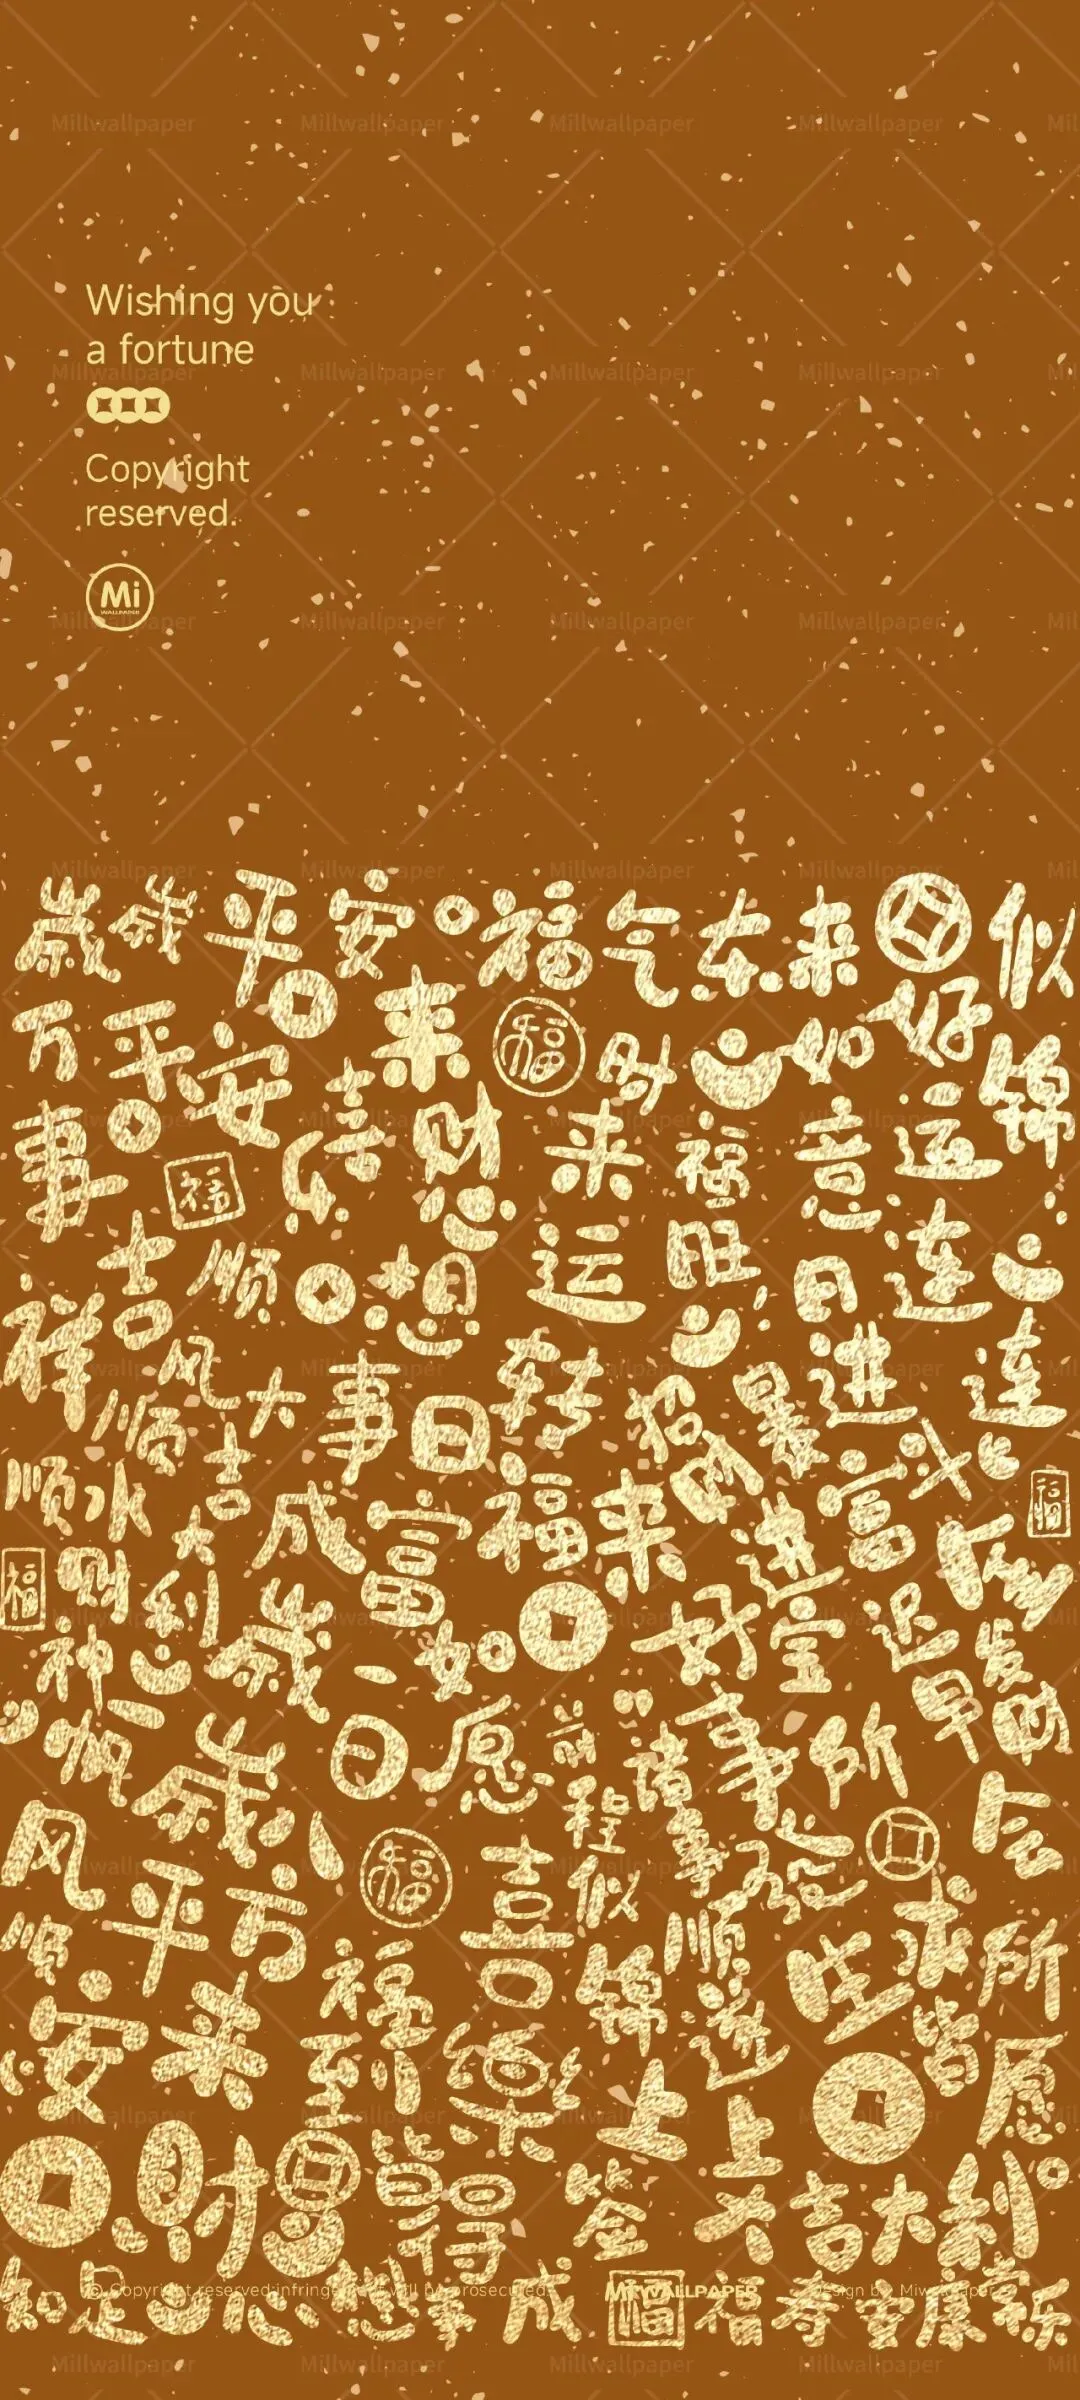 Wishing you
a fortune
Copyright
reserved.
Mi
WALLPAPER
歲歲平安
福气东来
似锦
好运连连
万事吉祥
平安喜乐
来财
福
财
如意
来福
财运
旺
日进斗金
顺
想事成
日
转
招财进宝
暴富
风顺
大吉大利
顺水
福来
好事
财神
一帆风顺
歲歲平安
如愿
八方来财
日
前程似锦
诸事顺遂
所愿皆得
迟早会发财
喜
福到
上上签
生
求
所愿
大吉大利
知足
心想事成
福
福寿安康
© Copyright reserved,infringement will be prosecuted
MIWALLPAPER
Design by Miwallpaper
Millwallpaper